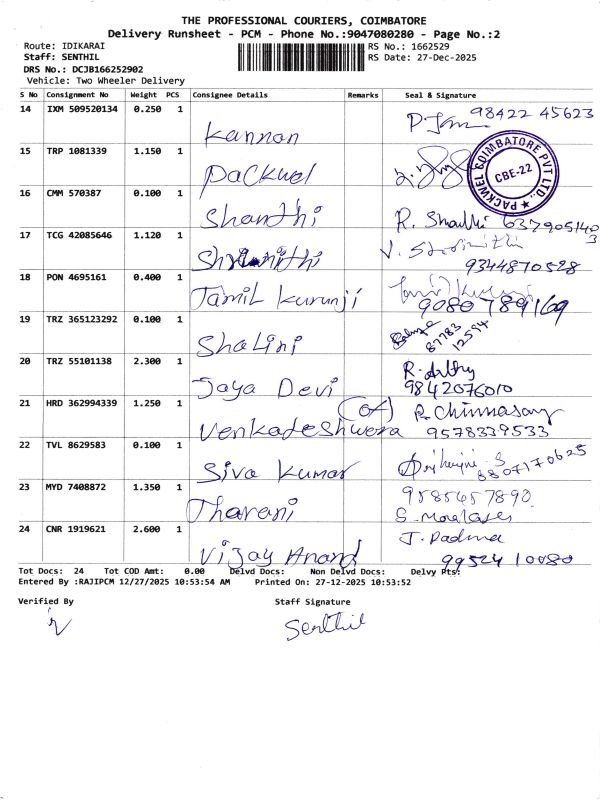 THE PROFESSIONAL COURIERS, COIMBATORE
Delivery Runsheet - PCM - Phone No.:9047080280 - Page No.:2
Route: IDIKARAI
RS No.: 1662529
Staff: SENTHIL
RS Date: 27-Dec-2025
DRS No.: DCJB166252902
Vehicle: Two Wheeler Delivery
S No Consignment No Weight PCS Consignee Details Remarks Seal & Signature
14 IXM 509520134 0.250 1 Kannan 98422 45623
15 TRP 1081339 1.150 1 Packwel
PACKWEL COIMBATORE PVT LTD.
CBE-22
16 CMM 570387 0.100 1 Shanthi R. Shanthi 6379051403
17 TCG 42085646 1.120 1 Shrinithi 9344870528
18 PON 4695161 0.400 1 Tamil Kurunji 9080789169
19 TRZ 365123292 0.100 1 Shalini 87783 12594
20 TRZ 55101138 2.300 1 Jaya Devi R. Arthy 9842076010
21 HRD 362994339 1.250 1 Venkadeshwera R. Chinnasamy 9578339533
22 TVL 8629583 0.100 1 Siva Kumar 8807170625
23 MYD 7408872 1.350 1 Tharani 9585657890
24 CNR 1919621 2.600 1 Vijay Anand J. Padma 99524 10080
Tot Docs: 24 Tot COD Amt: 0.00 Delvd Docs: Non Delvd Docs: Delvy Pts:
Entered By :RAJIPCM 12/27/2025 10:53:54 AM Printed On: 27-12-2025 10:53:52
Verified By Staff Signature
Senthil